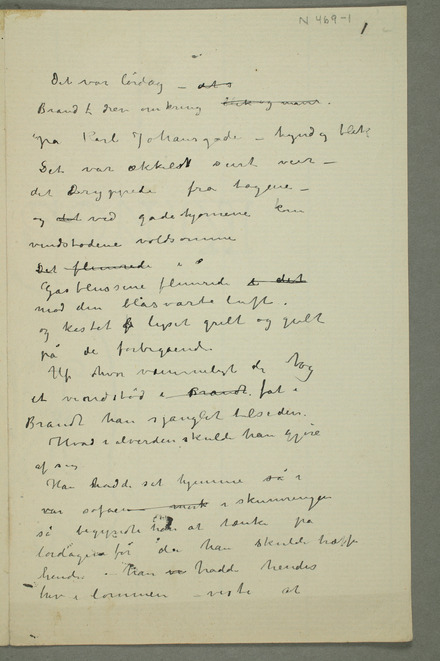 N 469-1
1
Det var lørdag –
Brandt drev omkring
på Karl Johansgade – tynd og blek
Det var ekkelt surt veir –
det dryppede fra tagene –
og ved gadehjørnene kom
vindstødene voldsomme
Det flimrede
Gasblussene flimrede det
mod den blåsvarte luft.
og kastet lyset grelt og gult
på de forbigående.
Uf hvor væmmeligt og tog
et vindstød Brandt fat i
Brandt han sjanglet tilside.
Hvad i alverden skulde han gjøre
af sig
Han hadde set hjemme så i
sofaen mørk i skumringen
så begynte han at tænke på
lørdagen før da han skulde træffe
hende. Han hadde hendes
brev i lommen – viste at